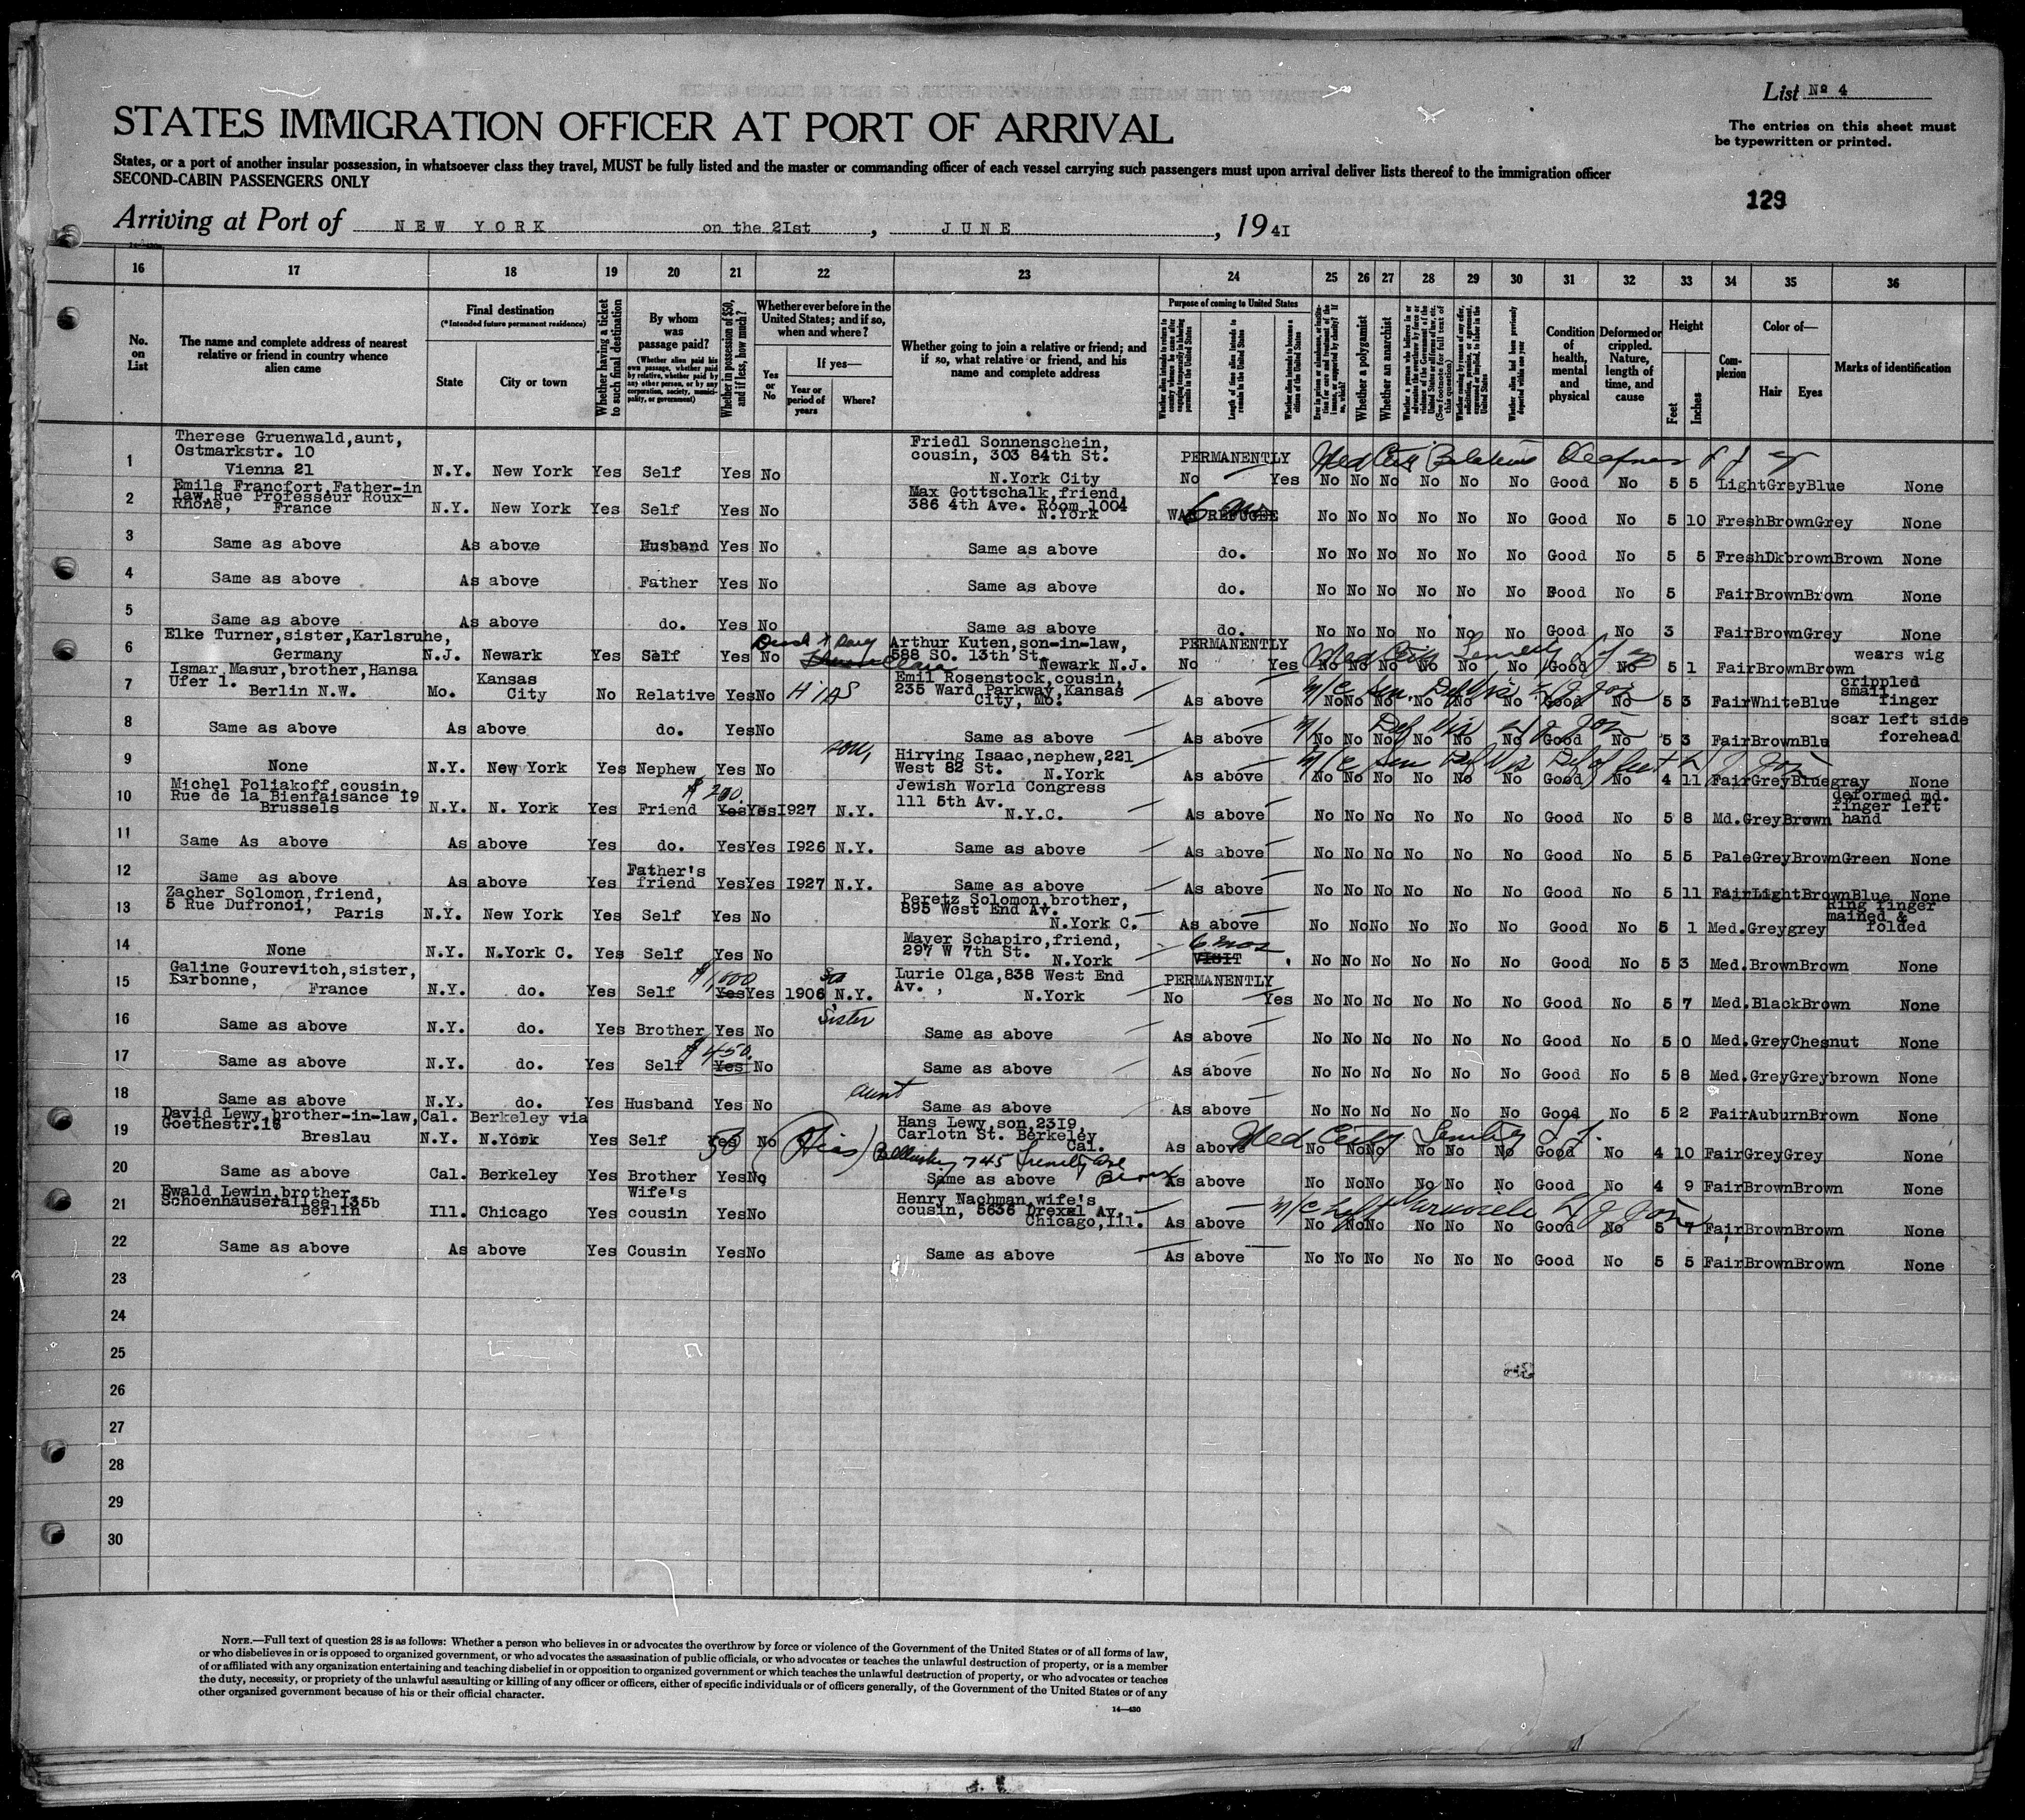 List Nº 4
STATES IMMIGRATION OFFICER AT PORT OF ARRIVAL
The entries on this sheet must
be typewritten or printed.
States, or a port of another insular possession, in whatsoever class they travel, MUST be fully listed and the master or commanding officer of each vessel carrying such passengers must upon arrival deliver lists thereof to the immigration officer
SECOND-CABIN PASSENGERS ONLY
129
Arriving at Port of NEW YORK on the 21st, JUNE, 1941
16 17 18 19 20 21 22 23 24 25 26 27 28 29 30 31 32 33 34 35 36
No. on List
The name and complete address of nearest relative or friend in country whence alien came
Final destination (*Intended future permanent residence)
State
City or town
Whether having a ticket to such final destination
By whom was passage paid?
(Whether alien paid his own passage, whether paid by relative, whether paid by any other person, or by any corporation, society, municipality, or government)
Whether in possession of $50, and if less, how much?
Whether ever before in the United States; and if so, when and where?
Yes or No
If yes—
Year or period of years
Where?
Whether going to join a relative or friend; and if so, what relative or friend, and his name and complete address
Purpose of coming to United States
Length of time alien intends to remain in the United States
Whether alien intends to become a citizen of the United States
Whether a polygamist
Whether an anarchist
(See footnote for full text of this question)
Condition of health, mental and physical
Deformed or crippled. Nature, length of time, and cause
Height
Feet
Inches
Complexion
Color of—
Hair
Eyes
Marks of identification
1 Therese Gruenwald,aunt, Ostmarkstr. 10 Vienna 21 N.Y. New York Yes Self Yes No Friedl Sonnenschein, cousin, 303 84th St. N.York City PERMANENTLY No Yes No No No No No No Good No 5 5 Light Grey Blue None
2 Emile Francfort,Father-in law,Rue Professeur Roux- Rhone, France N.Y. New York Yes Self Yes No Max Gottschalk,friend, 386 4th Ave. Room 1004 N.York WAR REFUGEE No No No No No No Good No 5 10 Fresh Brown Grey None
3 Same as above As above Husband Yes No Same as above do. No No No No No No Good No 5 5 Fresh Dkbrown Brown None
4 Same as above As above Father Yes No Same as above do. No No No No No No Good No 5 Fair Brown Brown None
5 Same as above As above do. Yes No Same as above do. No No No No No No Good No 3 Fair Brown Grey None
6 Elke Turner,sister,Karlsruhe, Germany N.J. Newark Yes Self Yes No Arthur Kuten,son-in-law, 588 SO. 13th St. Newark N.J. PERMANENTLY No Yes No No No No No No Good No 5 1 Fair Brown Brown wears wig
7 Ismar Masur,brother,Hansa Ufer 1. Berlin N.W. Mo. Kansas City No Relative Yes No HIAS Emil Rosenstock,cousin, 235 Ward Parkway,Kansas City, Mo. As above No No No No No No Good No 5 3 Fair White Blue crippled small finger
8 Same as above As above do. Yes No Same as above As above No No No No No No Good No 5 3 Fair Brown Blu scar left side forehead
9 None N.Y. New York Yes Nephew Yes No Hirving Isaac,nephew,221 West 82 St. N.York As above No No No No No No Good No 4 11 Fair Grey Bluegray None
10 Michel Poliakoff,cousin, Rue de la Bienfaisance 19 Brussels N.Y. N. York Yes Friend $ 200. Yes Yes 1927 N.Y. Jewish World Congress 111 5th Av. N.Y.C. As above No No No No No No Good No 5 8 Md. Grey Brown deformed md. finger left hand
11 Same As above As above Yes do. Yes Yes 1926 N.Y. Same as above As above No No No No No No Good No 5 5 Pale GreyBrown Green None
12 Same as above As above Yes Father's friend Yes Yes 1927 N.Y. Same as above As above No No No No No No Good No 5 11 Fair LightBrown Blue None
13 Zacher Solomon,friend, 5 Rue Dufronoi, Paris N.Y. New York Yes Self Yes No Peretz Solomon,brother, 895 West End Av. N.York C. As above No No No No No No Good No 5 1 Med. Grey grey Ring finger mained & folded
14 None N.Y. N.York C. Yes Self Yes No Mayer Schapiro,friend, 297 W 7th St. N.York 6 mos VISIT No No No No No No Good No 5 3 Med. Brown Brown None
15 Galine Gourevitch,sister, Larbonne, France N.Y. do. Yes Self $1,000 Yes Yes 1906 N.Y. Lurie Olga,838 West End Av., N.York PERMANENTLY No Yes No No No No No No Good No 5 7 Med. Black Brown None
16 Same as above N.Y. do. Yes Brother Yes No Sister Same as above As above No No No No No No Good No 5 0 Med. Grey Chesnut None
17 Same as above N.Y. do. Yes Self $450. Yes No Same as above As above No No No No No No Good No 5 8 Med. Grey Greybrown None
18 Same as above N.Y. do. Yes Husband Yes No aunt Same as above As above No No No No No No Good No 5 2 Fair Auburn Brown None
19 David Lewy,brother-in-law, Goethestr.16 Breslau Cal. Berkeley via N.Y. N.York Yes Self 50 Yes No (Hias) Hans Lewy,son,2319, Carlotn St. Berkeley Cal. As above No No No No No No Good No 4 10 Fair Grey Grey None
20 Same as above Cal. Berkeley Yes Brother Yes No Same as above As above No No No No No No Good No 4 9 Fair Brown Brown None
21 Ewald Lewin,brother, Schoenhauserallee 135b Berlin Ill. Chicago Yes Wife's cousin Yes No Henry Nachman,wife's cousin, 5636 Drexel Av. Chicago,Ill. As above No No No No No No Good No 5 7 Fair Brown Brown None
22 Same as above As above Yes Cousin Yes No Same as above As above No No No No No No Good No 5 5 Fair Brown Brown None
23
24
25
26
27
28
29
30
NOTE.—Full text of question 28 is as follows: Whether a person who believes in or advocates the overthrow by force or violence of the Government of the United States or of all forms of law,
or who disbelieves in or is opposed to organized government, or who advocates the assassination of public officials, or who advocates or teaches the unlawful destruction of property, or is a member
of or affiliated with any organization entertaining and teaching disbelief in or opposition to organized government or which teaches the unlawful destruction of property, or who advocates or teaches
the duty, necessity, or propriety of the unlawful assaulting or killing of any officer or officers, either of specific individuals or of officers generally, of the Government of the United States or of any
other organized government because of his or their official character.
14—430